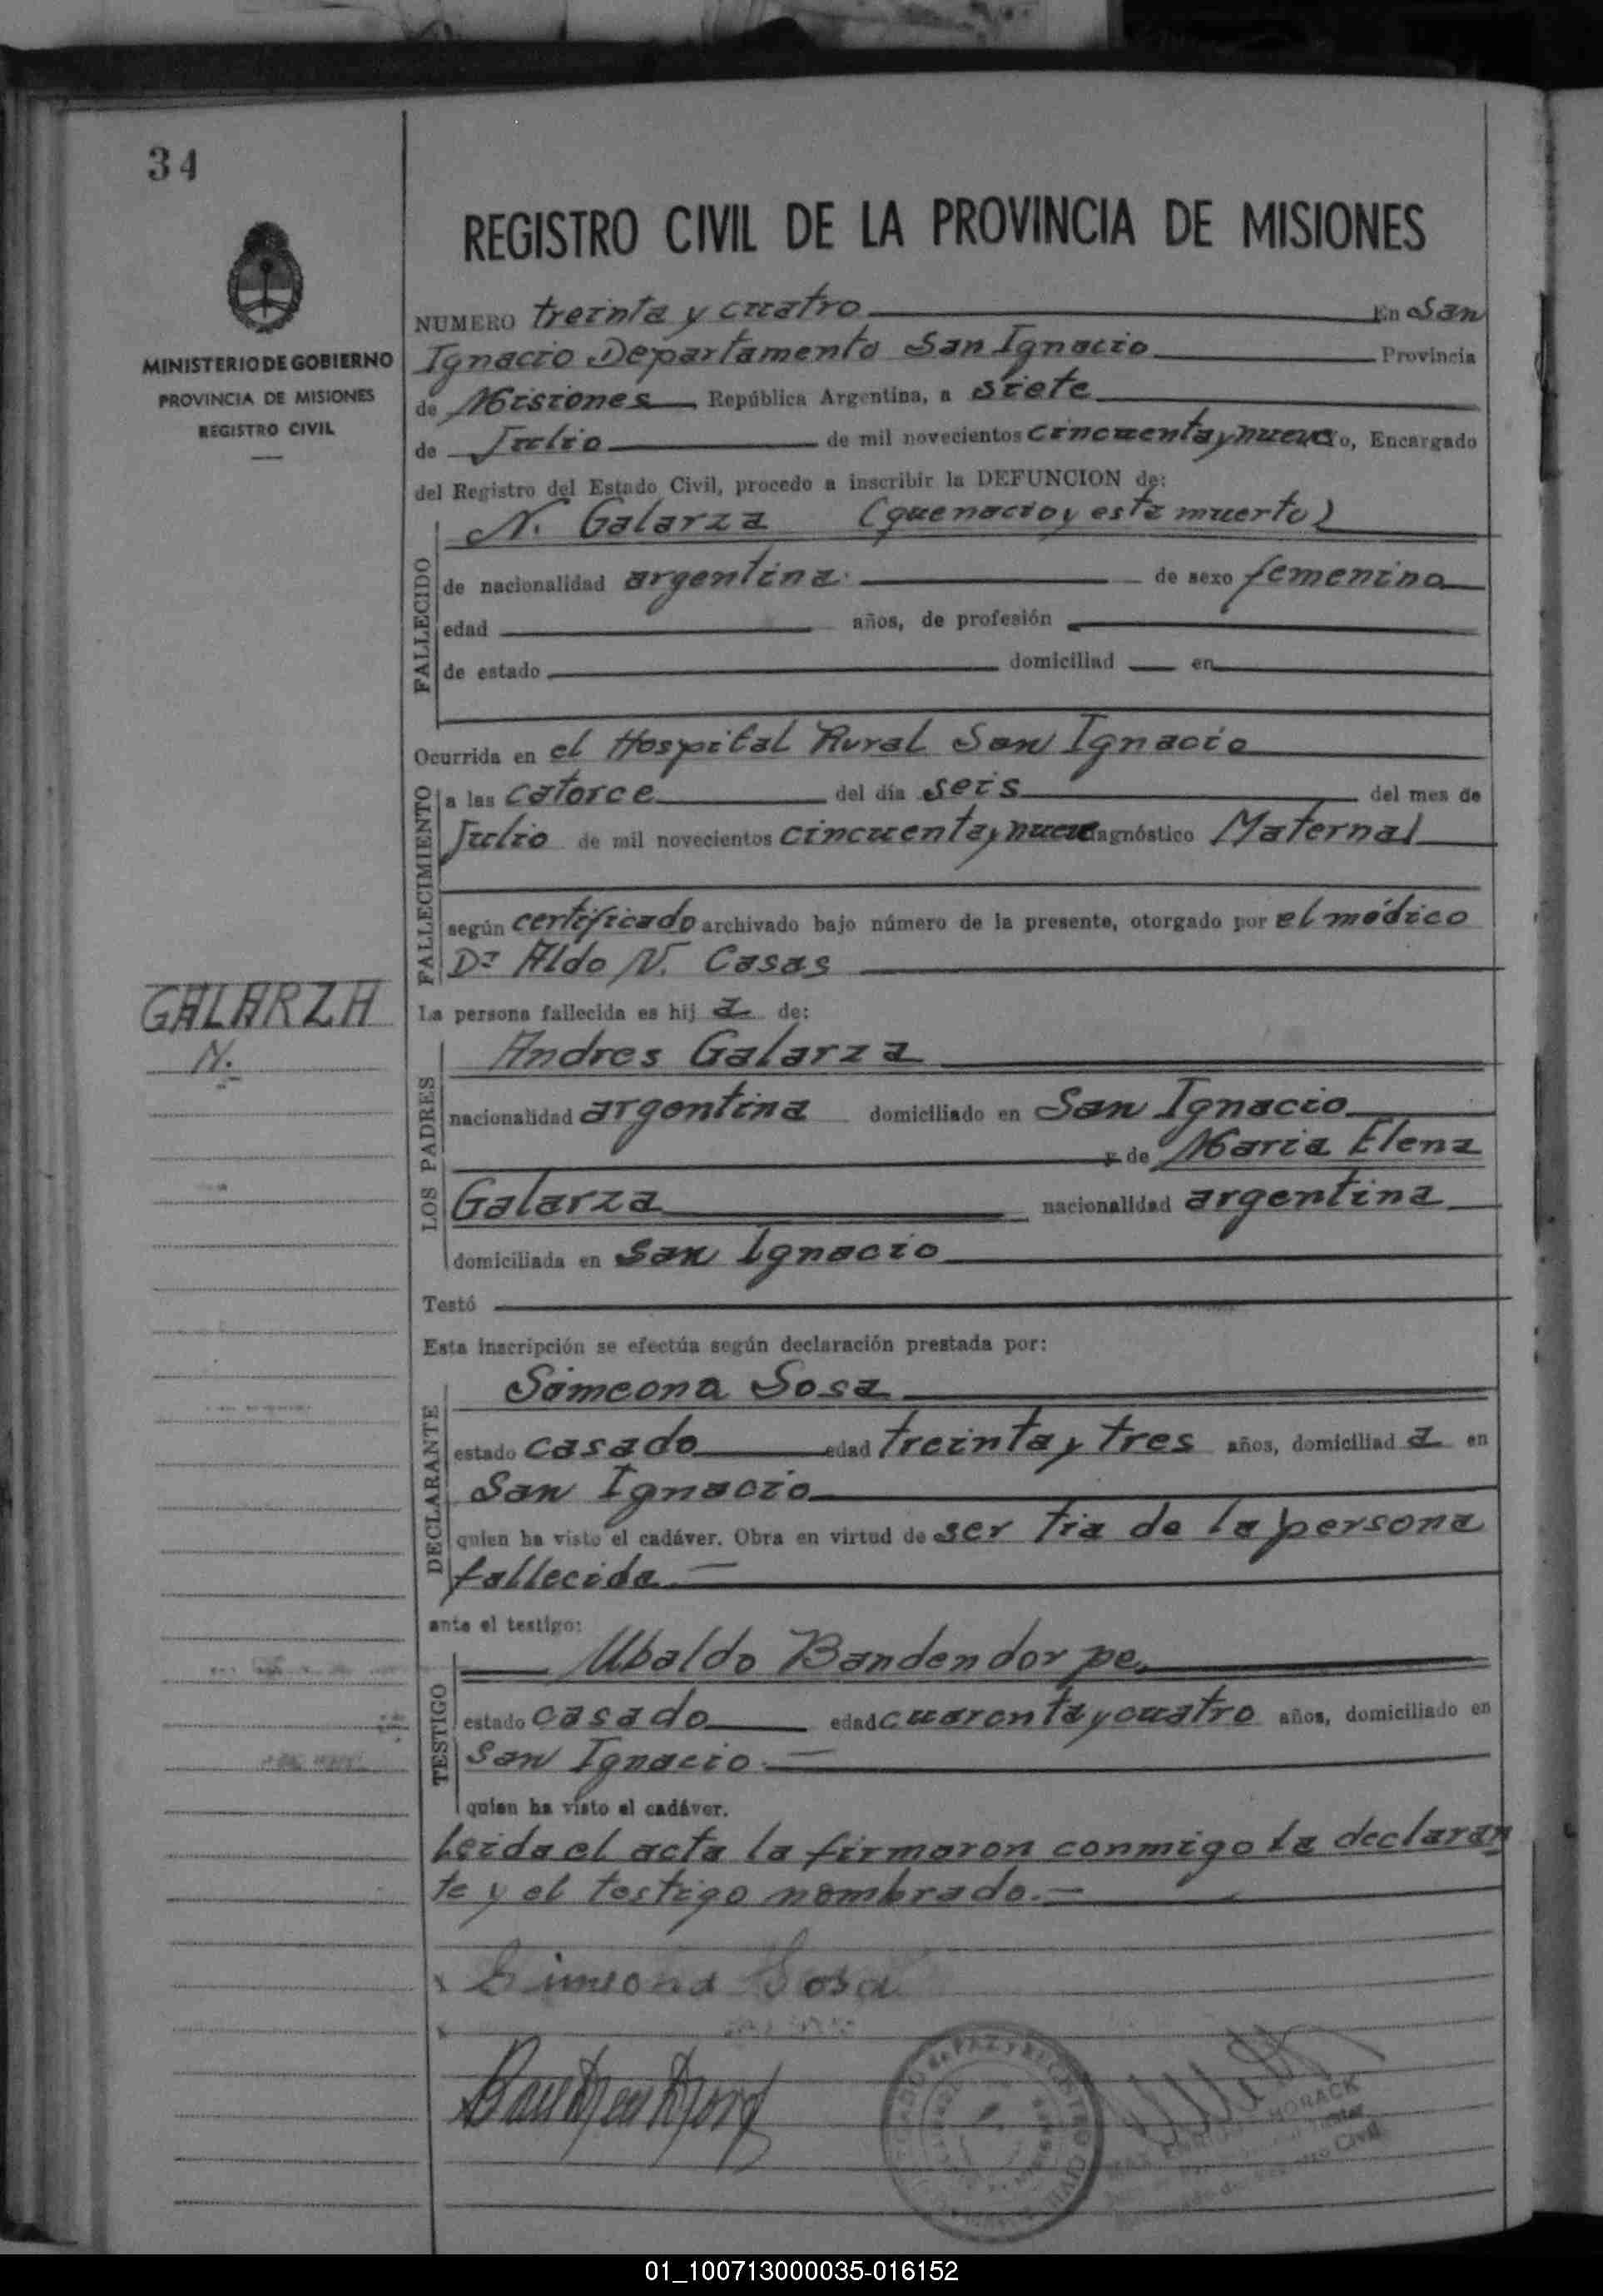 34
REGISTRO CIVIL DE LA PROVINCIA DE MISIONES
MINISTERIO DE GOBIERNO
PROVINCIA DE MISIONES
REGISTRO CIVIL
NUMERO treinta y cuatro En San
Ignacio Departamento San Ignacio Provincia
de Misiones República Argentina, a siete
de Julio de mil novecientos cincuenta y nueve o, Encargado
del Registro del Estado Civil, procedo a inscribir la DEFUNCION de:
FALLECIDO
N. Galarza (que nacio y esta muerto)
de nacionalidad argentina. de sexo femenino
edad años, de profesión
de estado domiciliad en
Ocurrida en el Hospital Rural San Ignacio
FALLECIMIENTO
a las catorce del día seis del mes de
Julio de mil novecientos cincuenta y nueve diagnóstico Maternal
según certificado archivado bajo número de la presente, otorgado por el médico
Dr Aldo N. Casas
GALARZA
N.
La persona fallecida es hij a de:
LOS PADRES
Andres Galarza
nacionalidad argentina domiciliado en San Ignacio
y de Maria Elena
Galarza nacionalidad argentina
domiciliada en San Ignacio
Testó
Esta inscripción se efectúa según declaración prestada por:
DECLARANTE
Simeona Sosa
estado casado edad treinta y tres años, domiciliad a en
San Ignacio
quien ha visto el cadáver. Obra en virtud de ser tia de la persona
fallecida.—
ante el testigo:
TESTIGO
Ubaldo Bandendorpe.
estado casado edad cuarenta y cuatro años, domiciliado en
San Ignacio.—
quien ha visto el cadáver.
Leida el acta la firmaron conmigo la declaran
te y el testigo nombrado.—
x Simeona Sosa
x
HORACK
Civil
01_100713000035-016152